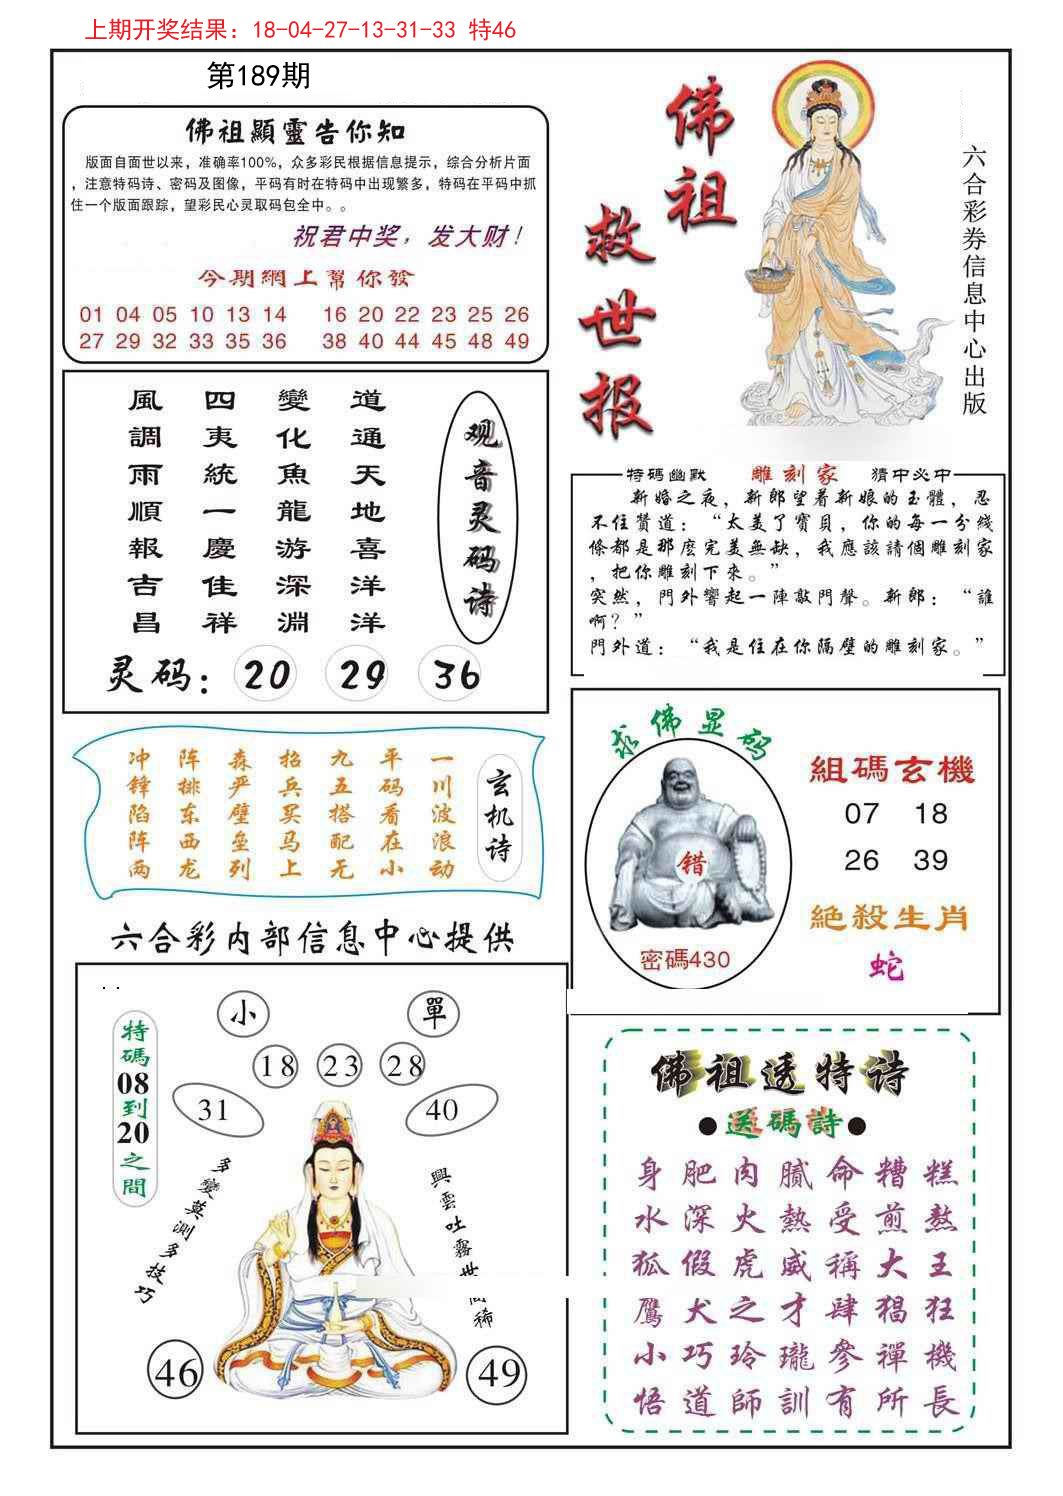 上期开奖结果：18-04-27-13-31-33 特46
第189期
佛祖顯靈告你知
版面自面世以来，准确率100%，众多彩民根据信息提示，综合分析片面
，注意特码诗、密码及图像，平码有时在特码中出现繁多，特码在平码中抓
住一个版面跟踪，望彩民心灵取码包全中。。
祝君中奖，发大财！
今期網上幫你發
01 04 05 10 13 14 16 20 22 23 25 26
27 29 32 33 35 36 38 40 44 45 48 49
佛祖
救世报
六合彩券信息中心出版
道通天地喜洋洋
變化魚龍游深淵
四夷統一慶佳祥
風調雨順報吉昌
观音灵码诗
灵码：20 29 36
特码幽默 雕刻家 猜中必中
新婚之夜，新郎望着新娘的玉體，忍
不住贊道：“太美了寶貝，你的每一分綫
條都是那麽完美無缺，我應該請個雕刻家
，把你雕刻下來。”
突然，門外響起一陣敲門聲。新郎：“誰
啊？”
門外道：“我是住在你隔壁的雕刻家。”
玄机诗
一川波浪动
平码看在小
九五搭配无
招兵买马上
森严壁垒列
阵排东西龙
冲锋陷阵两
求佛显码
错
密碼430
組碼玄機
07 18
26 39
絕殺生肖
蛇
六合彩内部信息中心提供
特碼08到20之間
小 單
18 23 28
31 40
多變莫測多技巧
興雲吐霧世
稀
46 49
佛祖透特诗
●送碼詩●
身肥肉膩命糟糕
水深火熱受煎熬
狐假虎威稱大王
鷹犬之才肆猖狂
小巧玲瓏參禪機
悟道師訓有所長